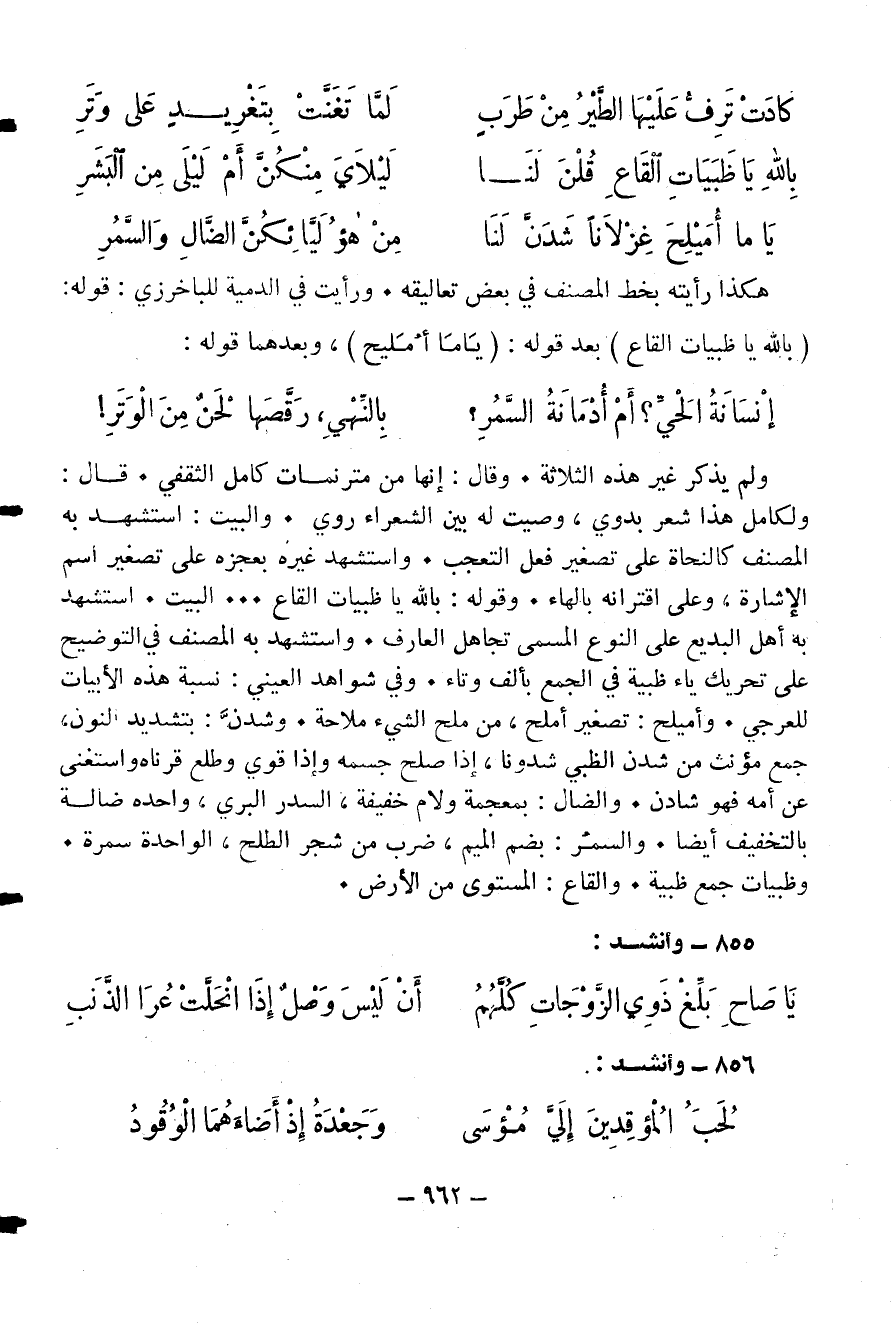 كادَتْ تَرِفُّ عَلَيْهَا الطَّيْرُ مِنْ طَرَبٍ لَمَّا تَغَنَّتْ بِتَغْرِيـــدٍ عَلى وَتَرِ
بِاللهِ يَا ظَبَيَاتِ القَاعِ قُلْنَ لَنَــا لَيْلاَيَ مِنْكُنَّ أَمْ لَيْلَى مِن البَشَرِ
يَا ما أُمَيْلِحَ غِزْلاَناً شَدَنَّ لَنَا مِنْ هٰؤُلَيَّائِكُنَّ الضَّالِ وَالسَّمُرِ
هكذا رأيته بخط المصنف في بعض تعاليقه ٠ ورأيت في الدمية للباخرزي : قوله:
( بالله يا ظبيات القاع ) بعد قوله : ( يَامَا أُمَليح ) ، وبعدهما قوله :
إنْسَانَةُ الحْيِّ؟ أَمْ أُدْمَانَةُ السَّمُرِ؟ بِالنِّهْيِ، رَقَّصَهَا لَحْنٌ مِنَ الْوَتَرِ!
ولم يذكر غير هذه الثلاثة ٠ وقال : إنها من مترنمــات كامل الثقفي ٠ قــال :
ولكامل هذا شعر بدوي ، وصيت له بين الشعراء روي ٠ والبيت : استشهــد به
المصنف كالنحاة على تصغير فعل التعجب ٠ واستشهد غيره بعجزه على تصغير اسم
الإشارة ، وعلى اقترانه بالهاء ٠ وقوله : بالله يا ظبيات القاع ٠٠٠ البيت ٠ استشهد
به أهل البديع على النوع المسمى تجاهل العارف ٠ واستشهد به المصنف في التوضيح
على تحريك ياء ظبية في الجمع بألف وتاء ٠ وفي شواهد العيني : نسبة هذه الأبيات
للعرجي ٠ وأميلح : تصغير أملح ، من ملح الشيء ملاحة ٠ وشدنَّ : بتشديد النون،
جمع مؤنث من شدن الظبي شدونا ، إذا صلح جسمه وإذا قوي وطلع قرناه واستغنى
عن أمه فهو شادن ٠ والضال : بمعجمة ولام خفيفة ، السدر البري ، واحده ضالــة
بالتخفيف أيضا ٠ والسمُر : بضم الميم ، ضرب من شجر الطلح ، الواحدة سمرة ٠
وظبيات جمع ظبية ٠ والقاع : المستوى من الأرض ٠
٨٥٥ – وأنشــد :
يَا صَاحِ بَلِّغْ ذَوِي الزَّوْجَاتِ كُلَّهُمُ أَنْ لَيْسَ وَصْلٌ إِذَا انْحَلَّتْ عُرَا الذَّنَبِ
٨٥٦ – وأنشــد :
لَحَبَّ الْمُؤقِدِينَ إِلَيَّ مُـؤْسَى وَجَعْدَةُ إِذْ أَضَاءَهُمَا الْوُقُودُ
– ٩٦٢ –